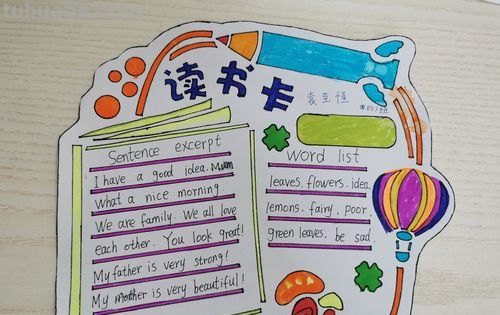 读书卡
袁至恒
Sentence excerpt
I have a good idea. Mum.
What a nice morning.
We are family. We all love
each other. You look great!
My father is very strong!
My mother is very beautiful!
Word list
leaves. flowers. idea
lemons. fairy. poor.
green leaves. be sad.